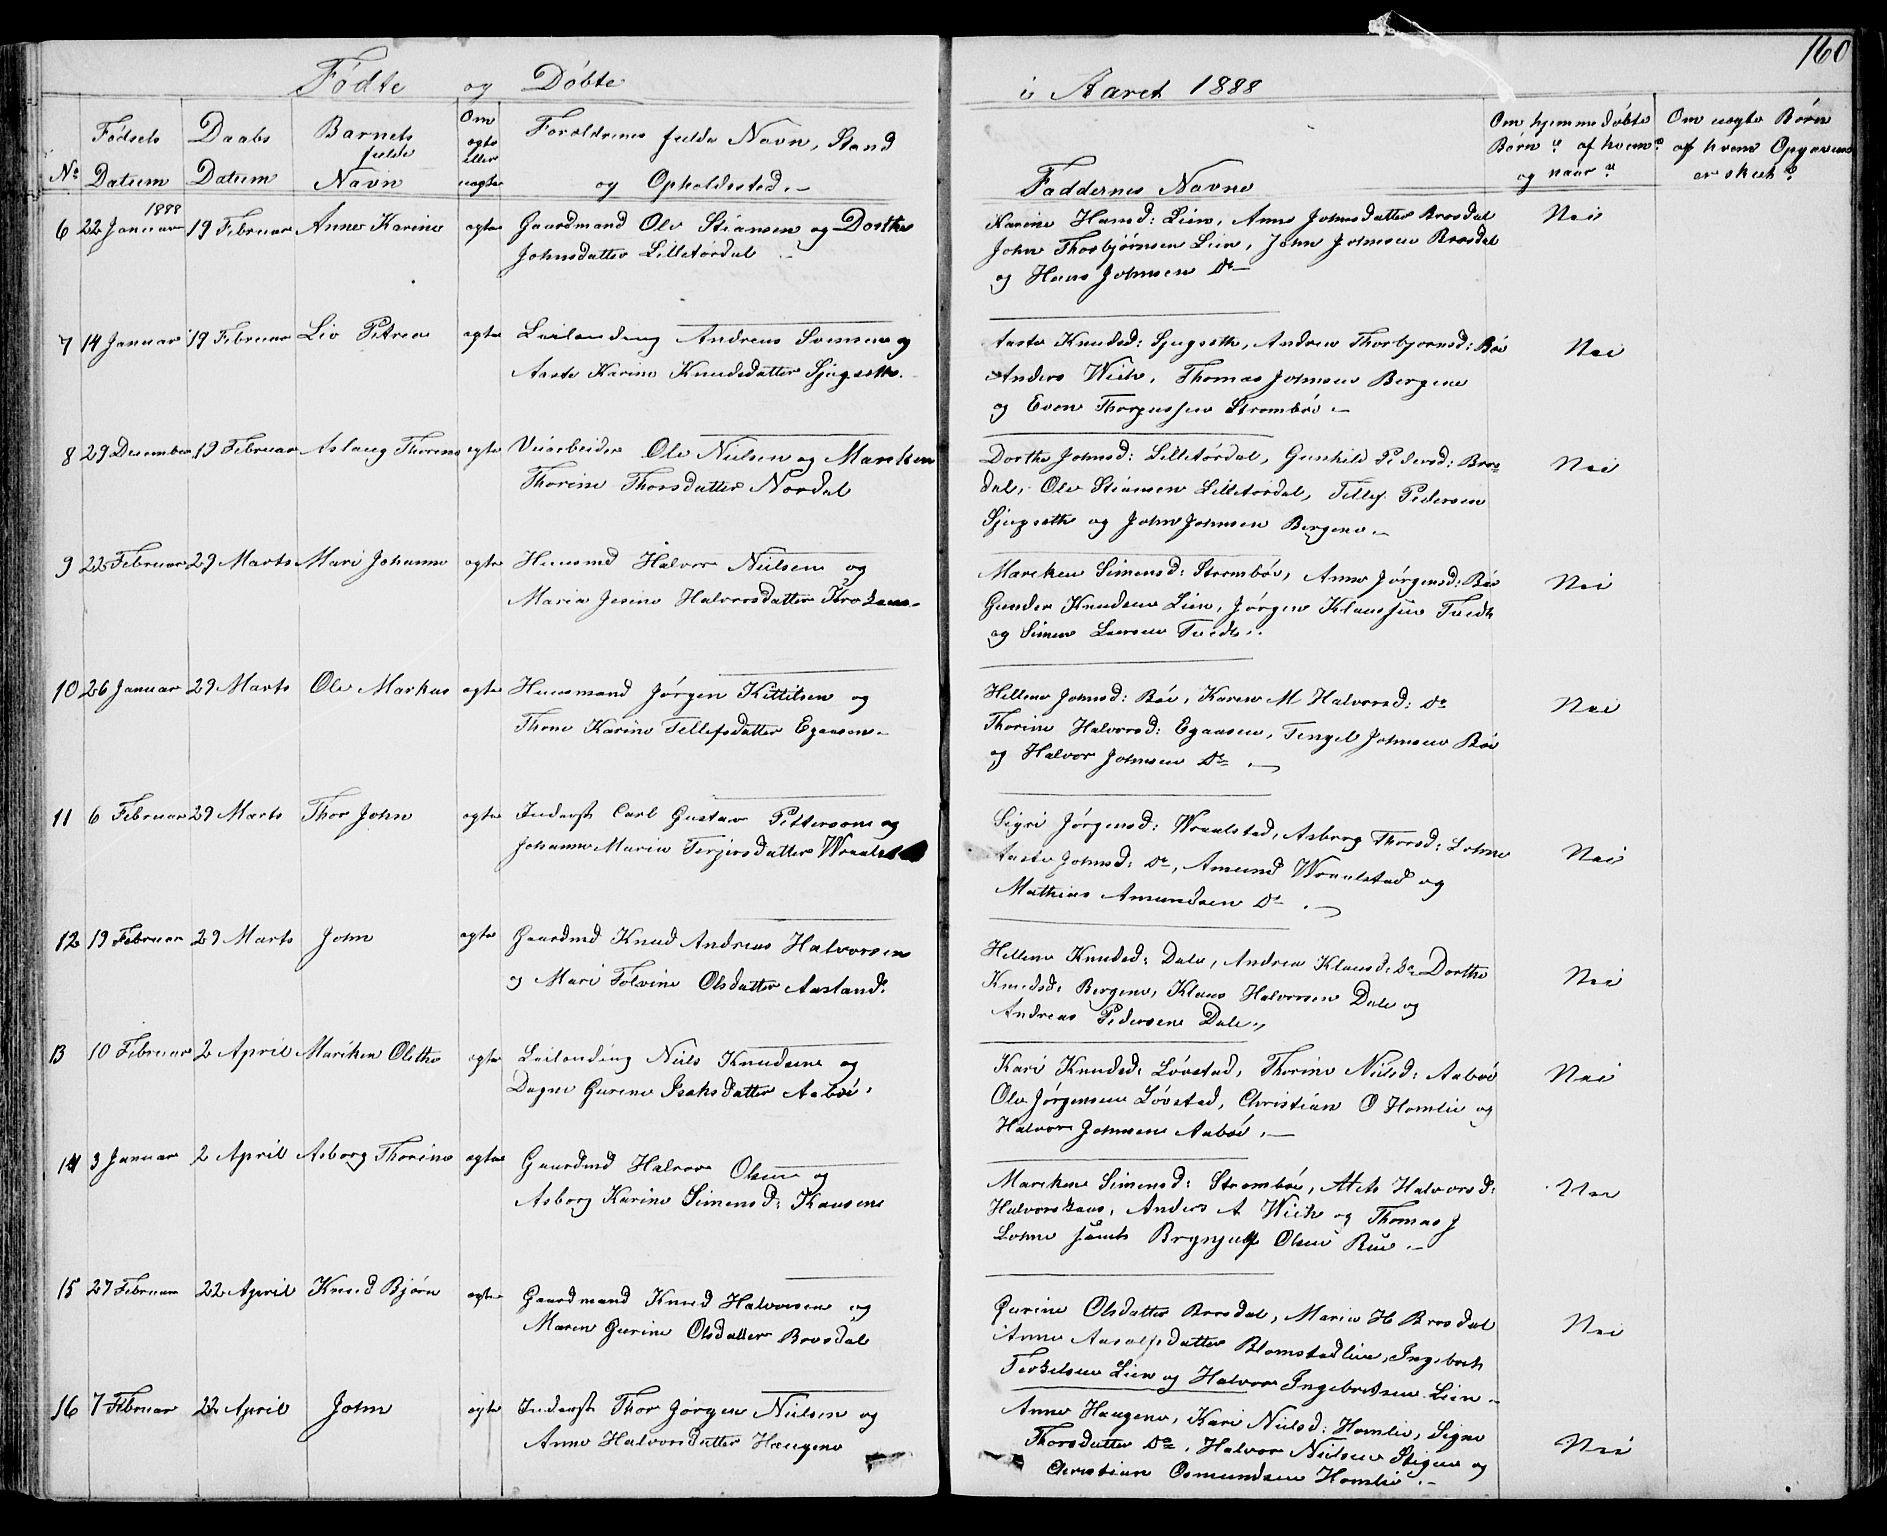 160
Fødte og Døbte i Aaret 1888
No
Fødsels Datum
Daabs Datum
Barnets fulde Navn
Om ægte eller uægte
Forældrenes fulde Navn, Stand og Opholdssted.-
Faddernes Navne
Om hjemmedøbte Børn af hvem og naar
Om uægte Børn af hvem Opgaven er skeet
6 22 Januar 1888 19 Februar Anne Karine ægte Gaardmand Ole Stiansen og Dorthe
Johnsdatter Lilletordal.-
Karine Hansd: Lien, Anne Johnsdatter Brosdal
John Thorbjørnsen Lien, John Johnsen Brosdal
og Hans Johnsen Do- Nei
7 14 Januar 19 Februar Liv Petrea ægte Leilending Andreas Svensen og
Aaste Karine Knudsdatter Sjugseth.
Aaste Knudsd: Sjugseth, Andrea Thorbjørnsd: Bøe
Anders Wich, Thomas Johnsen Bergene
og Even Thorgussen Strombøe.- Nei
8 29 December 19 Februar Aslaug Thorene ægte Veiarbeider Ole Nielsen og Mareken
Thorine Thorsdatter Nordal
Dorthe Johnsd: Lilletordal, Gunhild Pedersd: Bros-
dal, Ole Stiansen Lilletordal, Tellef Pedersen
Sjugseth og John Johnsen Bergene.- Nei
9 22 Februar 29 Marts Mari Johanne ægte Huusmd Halvor Nielsen og
Maria Jesine Halvorsdatter
Mareken Simensd: Strombøe, Anne Jørgensd: Bøe
Gunder Knudsen Lien, Jørgen Klaussen Tvedt
og Simen Larsen Tvedt.. Nei
10 26 Januar 29 Marts Ole Markus ægte Huusmand Jørgen Kittilsen og
Thone Karine Tellefsdatter Egaasen.-
Hellene Johnsd: Bøe, Karen M Halvorsd: Do
Thorine Halvorsd: Egaasen, Tengel Johnsen Bøe
og Halvor Johnsen Do.- Nei
11 6 Februar 29 Marts Thor John ægte Inderst Carl Gustav Pettersone og
Johanne Maria Terjersdatter
Sigri Jørgensd: Wraalstad, Asborg Thorsd: Lohne
Aaste Johnsd: Do, Amund Wraalstad og
Mathias Amundsen Do.- Nei
12 19 Februar 29 Marts John ægte Gaardmd Knud Andreas Halvorsen
og Mari Tolvine Olsdatter Aasland.
Hellene Knudsd: Dale, Andrea Klausd: Do Dorthe
Knudsd: Bergene, Klaus Halvorsen Dale og
Andreas Pedersen Dale., Nei
13 10 Februar 2 April Mariken Olethe ægte Leilending Niels Knudsen og
Dagne Gurine Isaksdatter Aabøe.
Kari Knudsd: Løvstad, Thorine Nielsd: Aabøe
Ole Jørgensen Løvstad, Christian O Homlie og
Halvor Johnsen Aabøe.- Nei
14 3 Januar 2 April Asborg Thorine ægte Gaardmd Halvor Olsen og
Asborg Karine Simensd: Kaasene
Mareken Simensd: Strombøe, Halvorsd:
Anders A Wich og Thomas J
Lohne samt Brynjulf Olsen Rue.- Nei
15 27 Februar 22 April Knud Bjørn ægte Gaardmand Knud Halvorsen og
Maren Gurine Olsdatter Brosdal
Gurine Olsdatter Brosdal, Maria H Brosdal
Anne Aasolfsdatter Blomstadlien, Ingebreth
Terkelsen Lien og Halvor Ingebretsen Lien- Nei
16 7 Februar 22 April John ægte Inderst Thor Jørgen Nielsen og
Anne Halvorsdatter Haugene
Anne Haugene, Kari Nielsd: Homlie, Signe
Thorsdatter Do, Halvor Nielsen Stigen og
Christian Osmundsen Homlie.- Nei